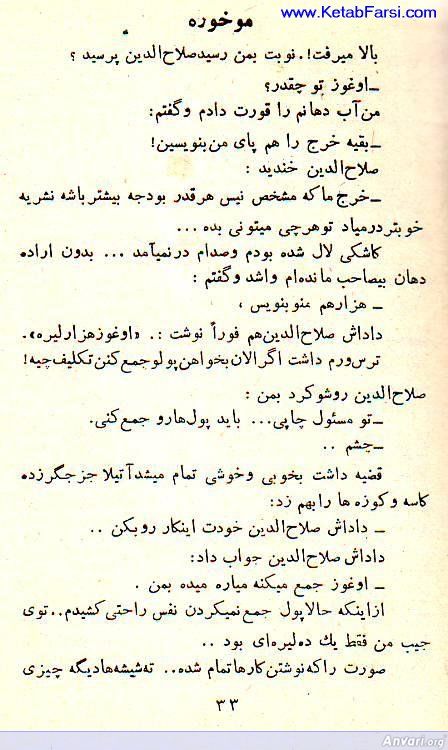 www.KetabFarsi.com
موخوره
بالا میرفت!. نوبت بمن رسیدصلاح‌الدین پرسید ؟
ـ اوغوز تو چقدر؟
من‌آب دهانم را قورت دادم وگفتم:
ـ بقیه خرج را هم پای من‌بنویسین!
صلاح‌الدین خندید :
ـ خرج ماکه مشخص نیس هرقدر بودجه بیشترباشه نشریه
خوبتردرمیاد توهرچی میتونی بده ...
کاشکی لال شده بودم وصدام درنمیآمد ... بدون اراده
دهان بیصاحب مانده‌ام واشد وگفتم :
ـ هزارهم منوبنویس ،
داداش صلاح‌الدین‌هم فوراً نوشت :. «اوغوزهزارلیره».
ترس‌ورم داشت اگرالان‌بخواهن‌پولوجمع‌کنن‌تکلیف‌چیه!
صلاح‌الدین روشوکرد بمن :
ـ تو مسئول چاپی... باید پول‌هارو جمع‌کنی.
ـ چشم ..
قضیه داشت بخوبی وخوشی تمام میشدآتیلا جزجگرزده
کاسه وکوزه ها رابهم زد:
ـ داداش صلاح‌الدین خودت اینکار روبکن ..
داداش صلاح‌الدین جواب داد:
ـ اوغوز جمع میکنه میاره میده بمن .
ازاینکه حالاپول جمع‌نمیکردن نفس راحتی‌کشیدم.. توی
جیب من فقط یك ده‌لیره‌ای بود ..
صورت راکه‌نوشتن‌کارهاتمام شده.. ته‌شیشه‌هادیگه چیزی
۳۳
Anvari.org